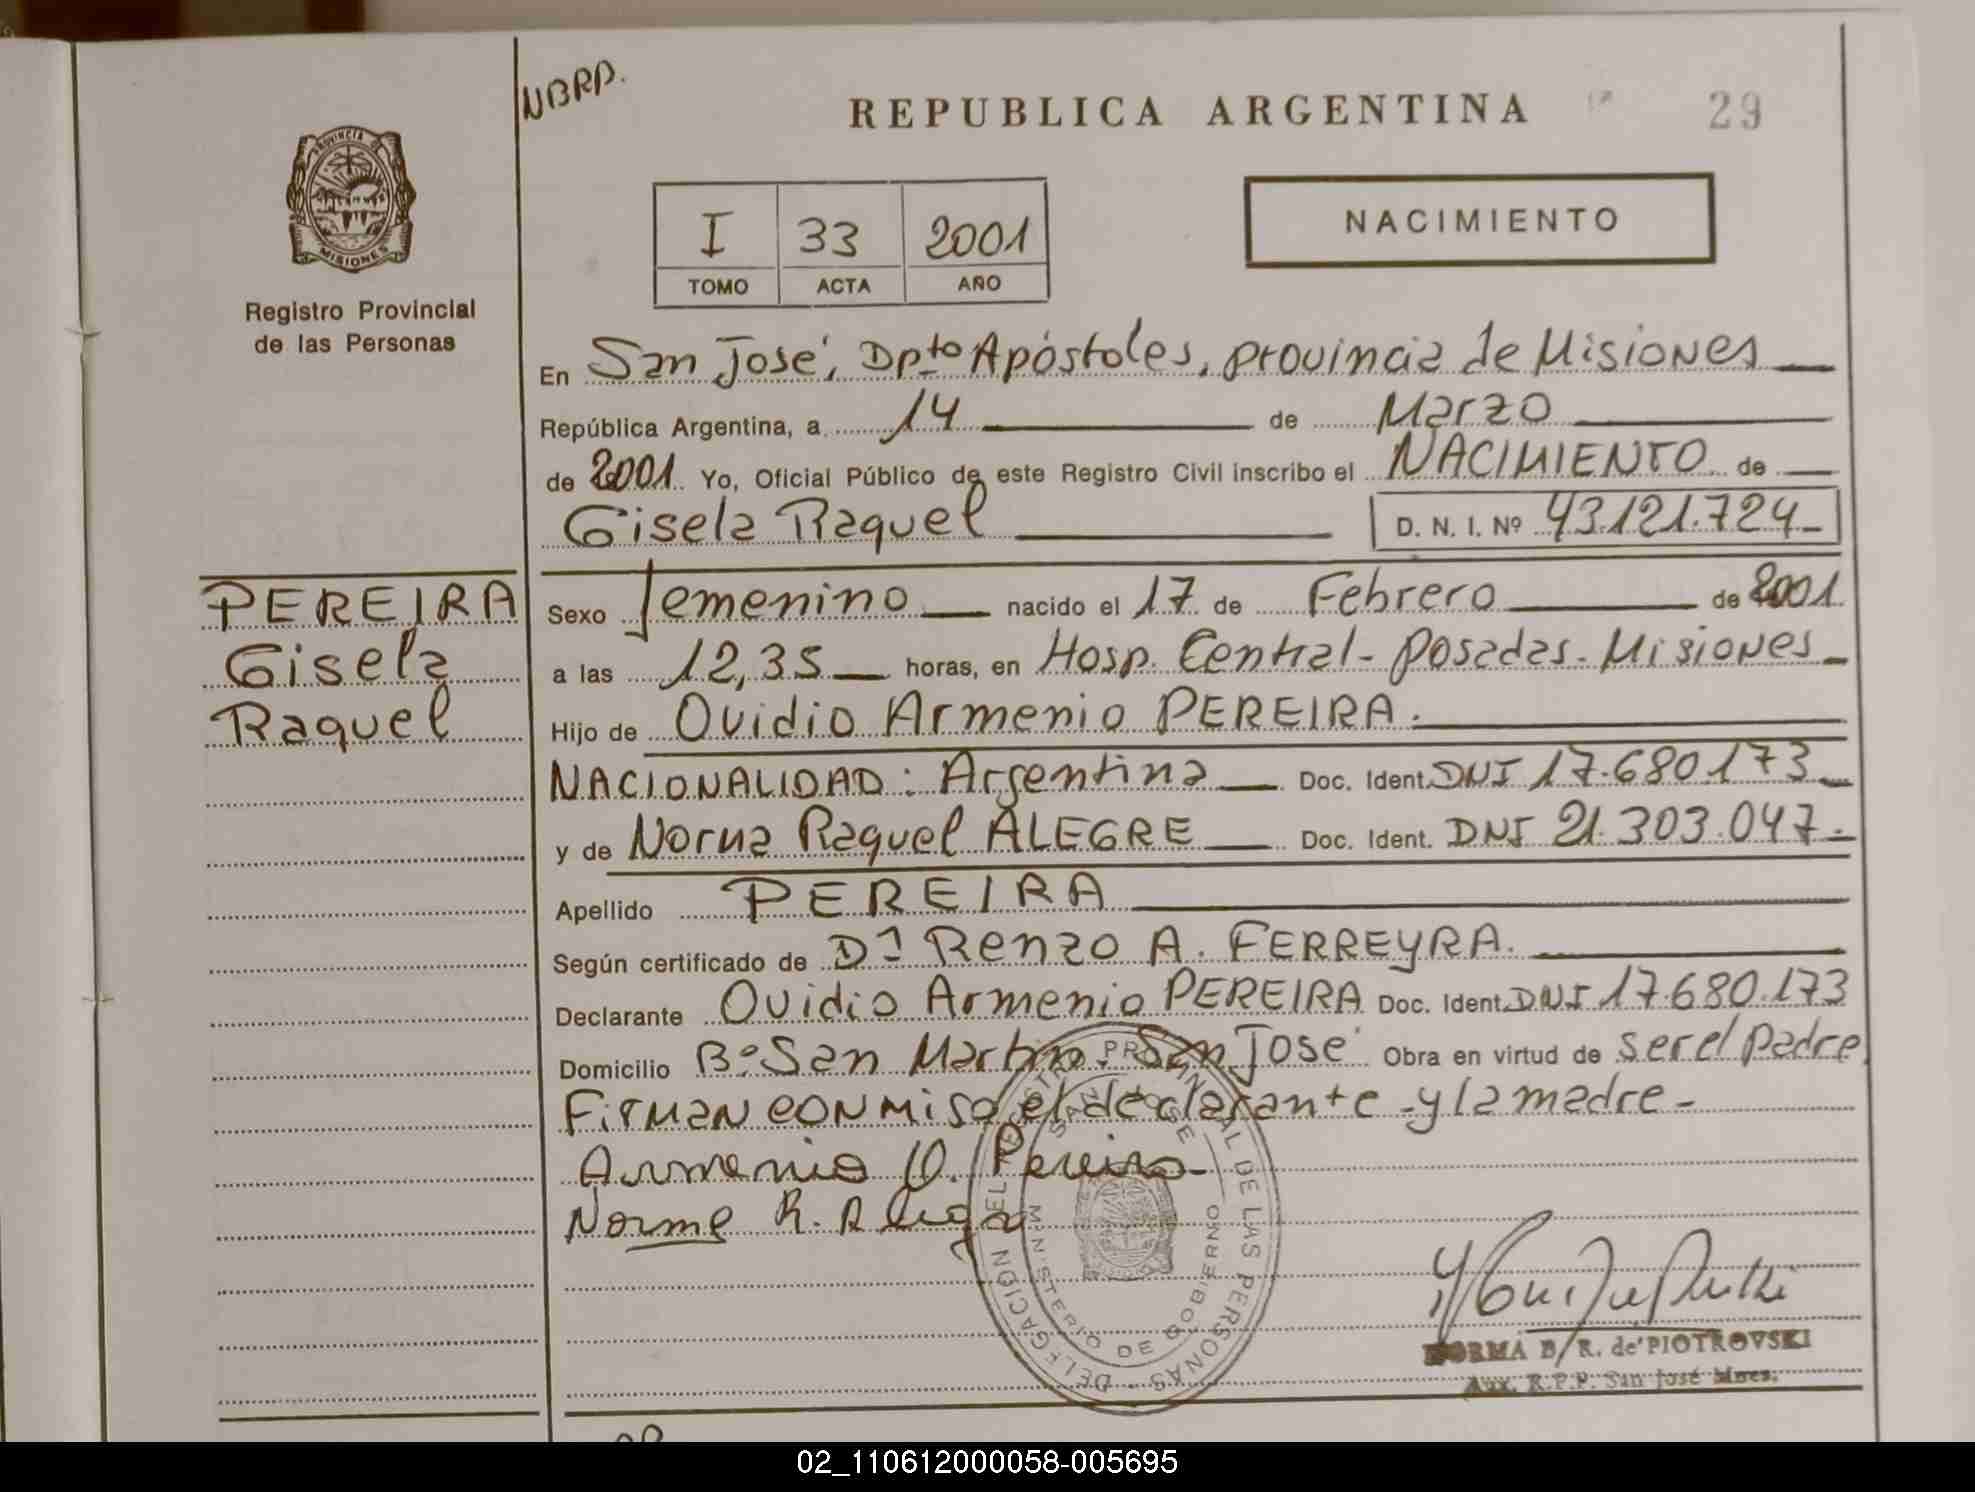 NBRP.
REPUBLICA ARGENTINA
29
PROVINCIA DE
MISIONES
Registro Provincial
de las Personas
I 33 2001
TOMO ACTA AÑO
NACIMIENTO
En San José, Dpto Apóstoles, provincia de Misiones
República Argentina, a 14 de Marzo
de 2001 Yo, Oficial Público de este Registro Civil inscribo el NACIMIENTO de
Gisela Raquel D. N. I. Nº 43.121.724
PEREIRA
Gisela
Raquel
Sexo femenino nacido el 17 de Febrero de 2001
a las 12,35 horas, en Hosp. Central - Posadas - Misiones
Hijo de Ovidio Armenio PEREIRA.
NACIONALIDAD: Argentina Doc. Ident. DNI 17.680.173
y de Norma Raquel ALEGRE Doc. Ident. DNI 21.303.047.-
Apellido PEREIRA
Según certificado de Dr Renzo A. FERREYRA.
Declarante Ovidio Armenio PEREIRA Doc. Ident. DNI 17.680.173
Domicilio Bº San Martin. San José Obra en virtud de ser el padre
Firman conmigo el declarante - y la madre -
Armenio O. Pereira
Norma R. Alegre
DELEGACION DEL REGISTRO PROVINCIAL DE LAS PERSONAS
SAN JOSE
MINISTERIO DE GOBIERNO
NORMA B. R. de PIOTROVSKI
Aux. R.P.P. San José Mnes.
02_110612000058-005695